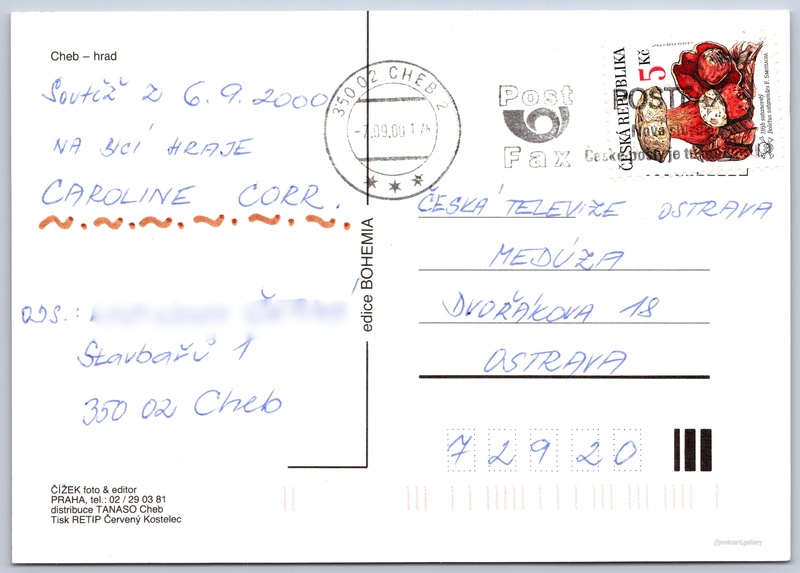 Cheb – hrad
Soutěž z 6.9.2000
NA BICÍ HRAJE
CAROLINE CORR.
ODS.:
Stavbařů 1
350 02 Cheb
ČÍŽEK foto & editor
PRAHA, tel.: 02 / 29 03 81
distribuce TANASO Cheb
Tisk RETIP Červený Kostelec
edice BOHEMIA
350 02 CHEB 2
-7.09.00
Post
Fax
POST
Nová
České pošty je
ČESKÁ REPUBLIKA
5 Kč
Hřib satanovitý
ČESKÁ TELEVIZE OSTRAVA
MEDÚZA
DVOŘÁKOVA 18
OSTRAVA
72920
//postcard.gallery